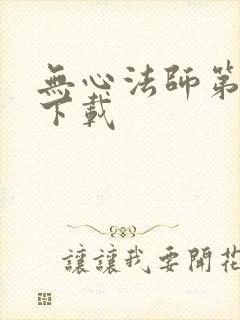 無心法師第
下載
讓讓我要開花